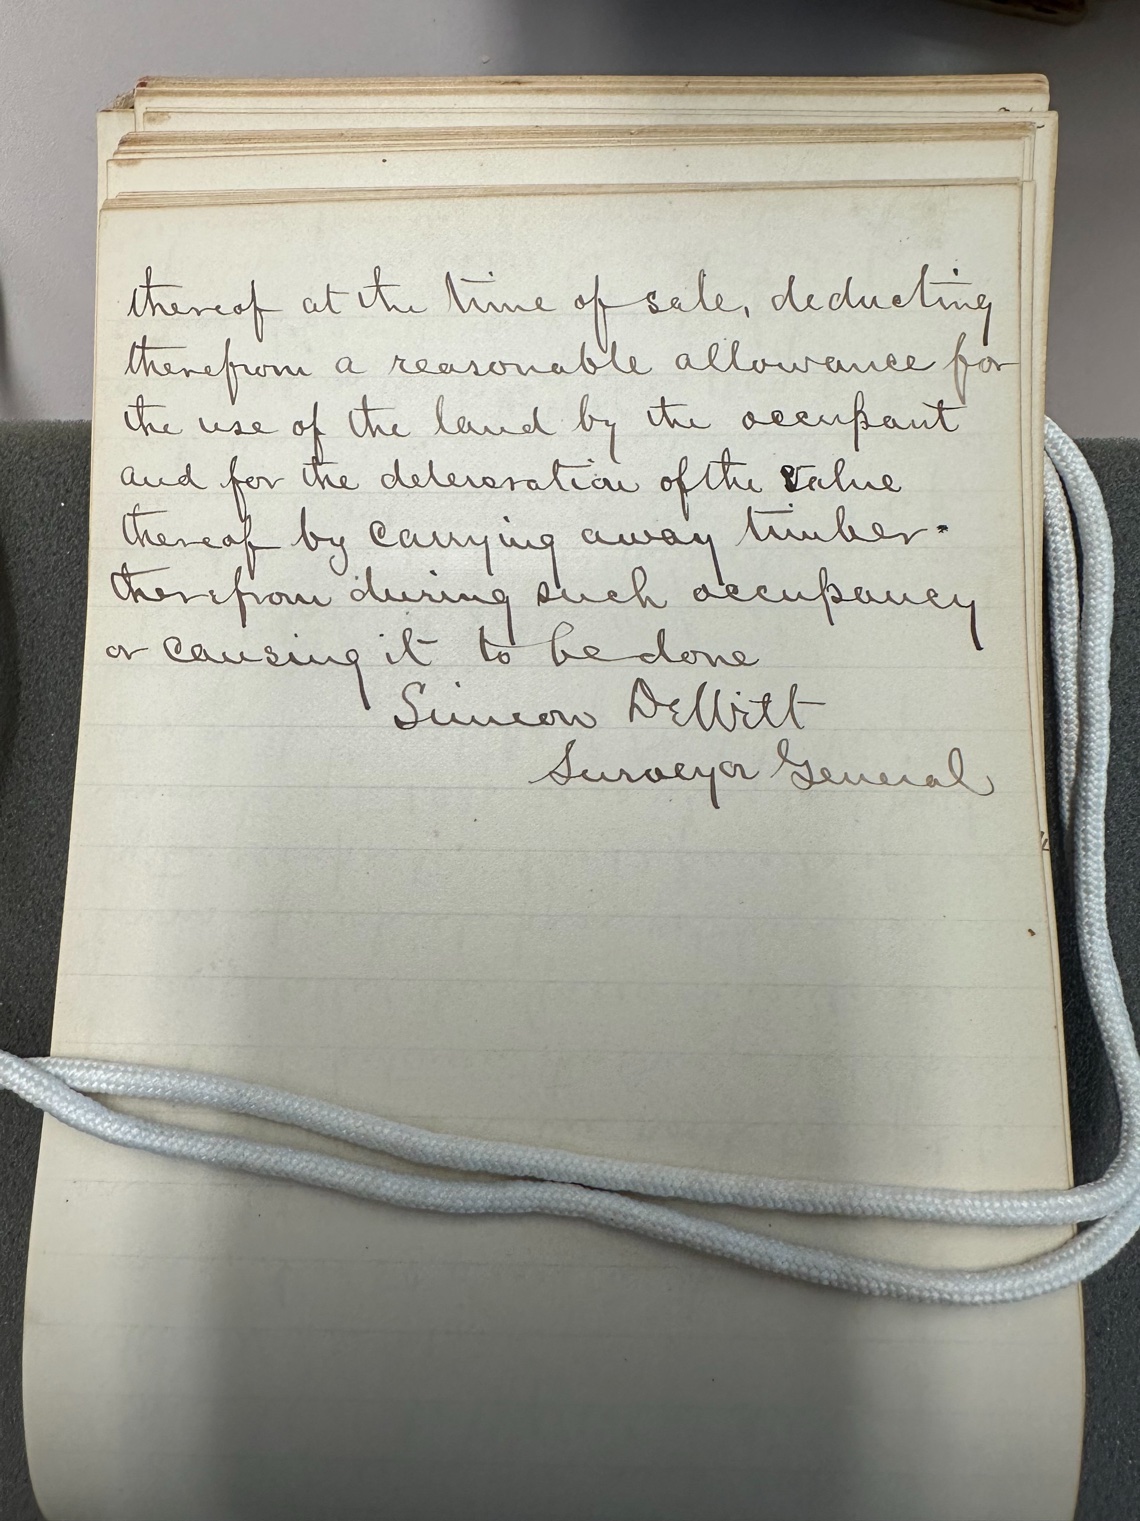 thereof at the time of sale, deducting
therefrom a reasonable allowance for
the use of the land by the occupant
and for the deleroration of the value
thereof by carrying away timber
therefrom during such occupancy
or causing it to be done
Simeon DeWitt
Surveyor General